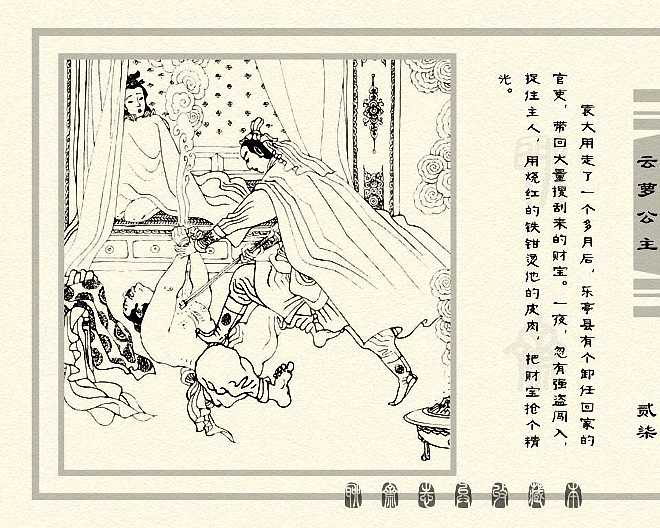 袁大用走了一个多月后，乐亭县有个卸任回家的
官吏，带回大量搜刮来的财宝。一夜，忽有强盗闯入，
捉住主人，用烧红的铁钳烫他的皮肉，把财宝抢个精
光。
云萝公主
贰柒